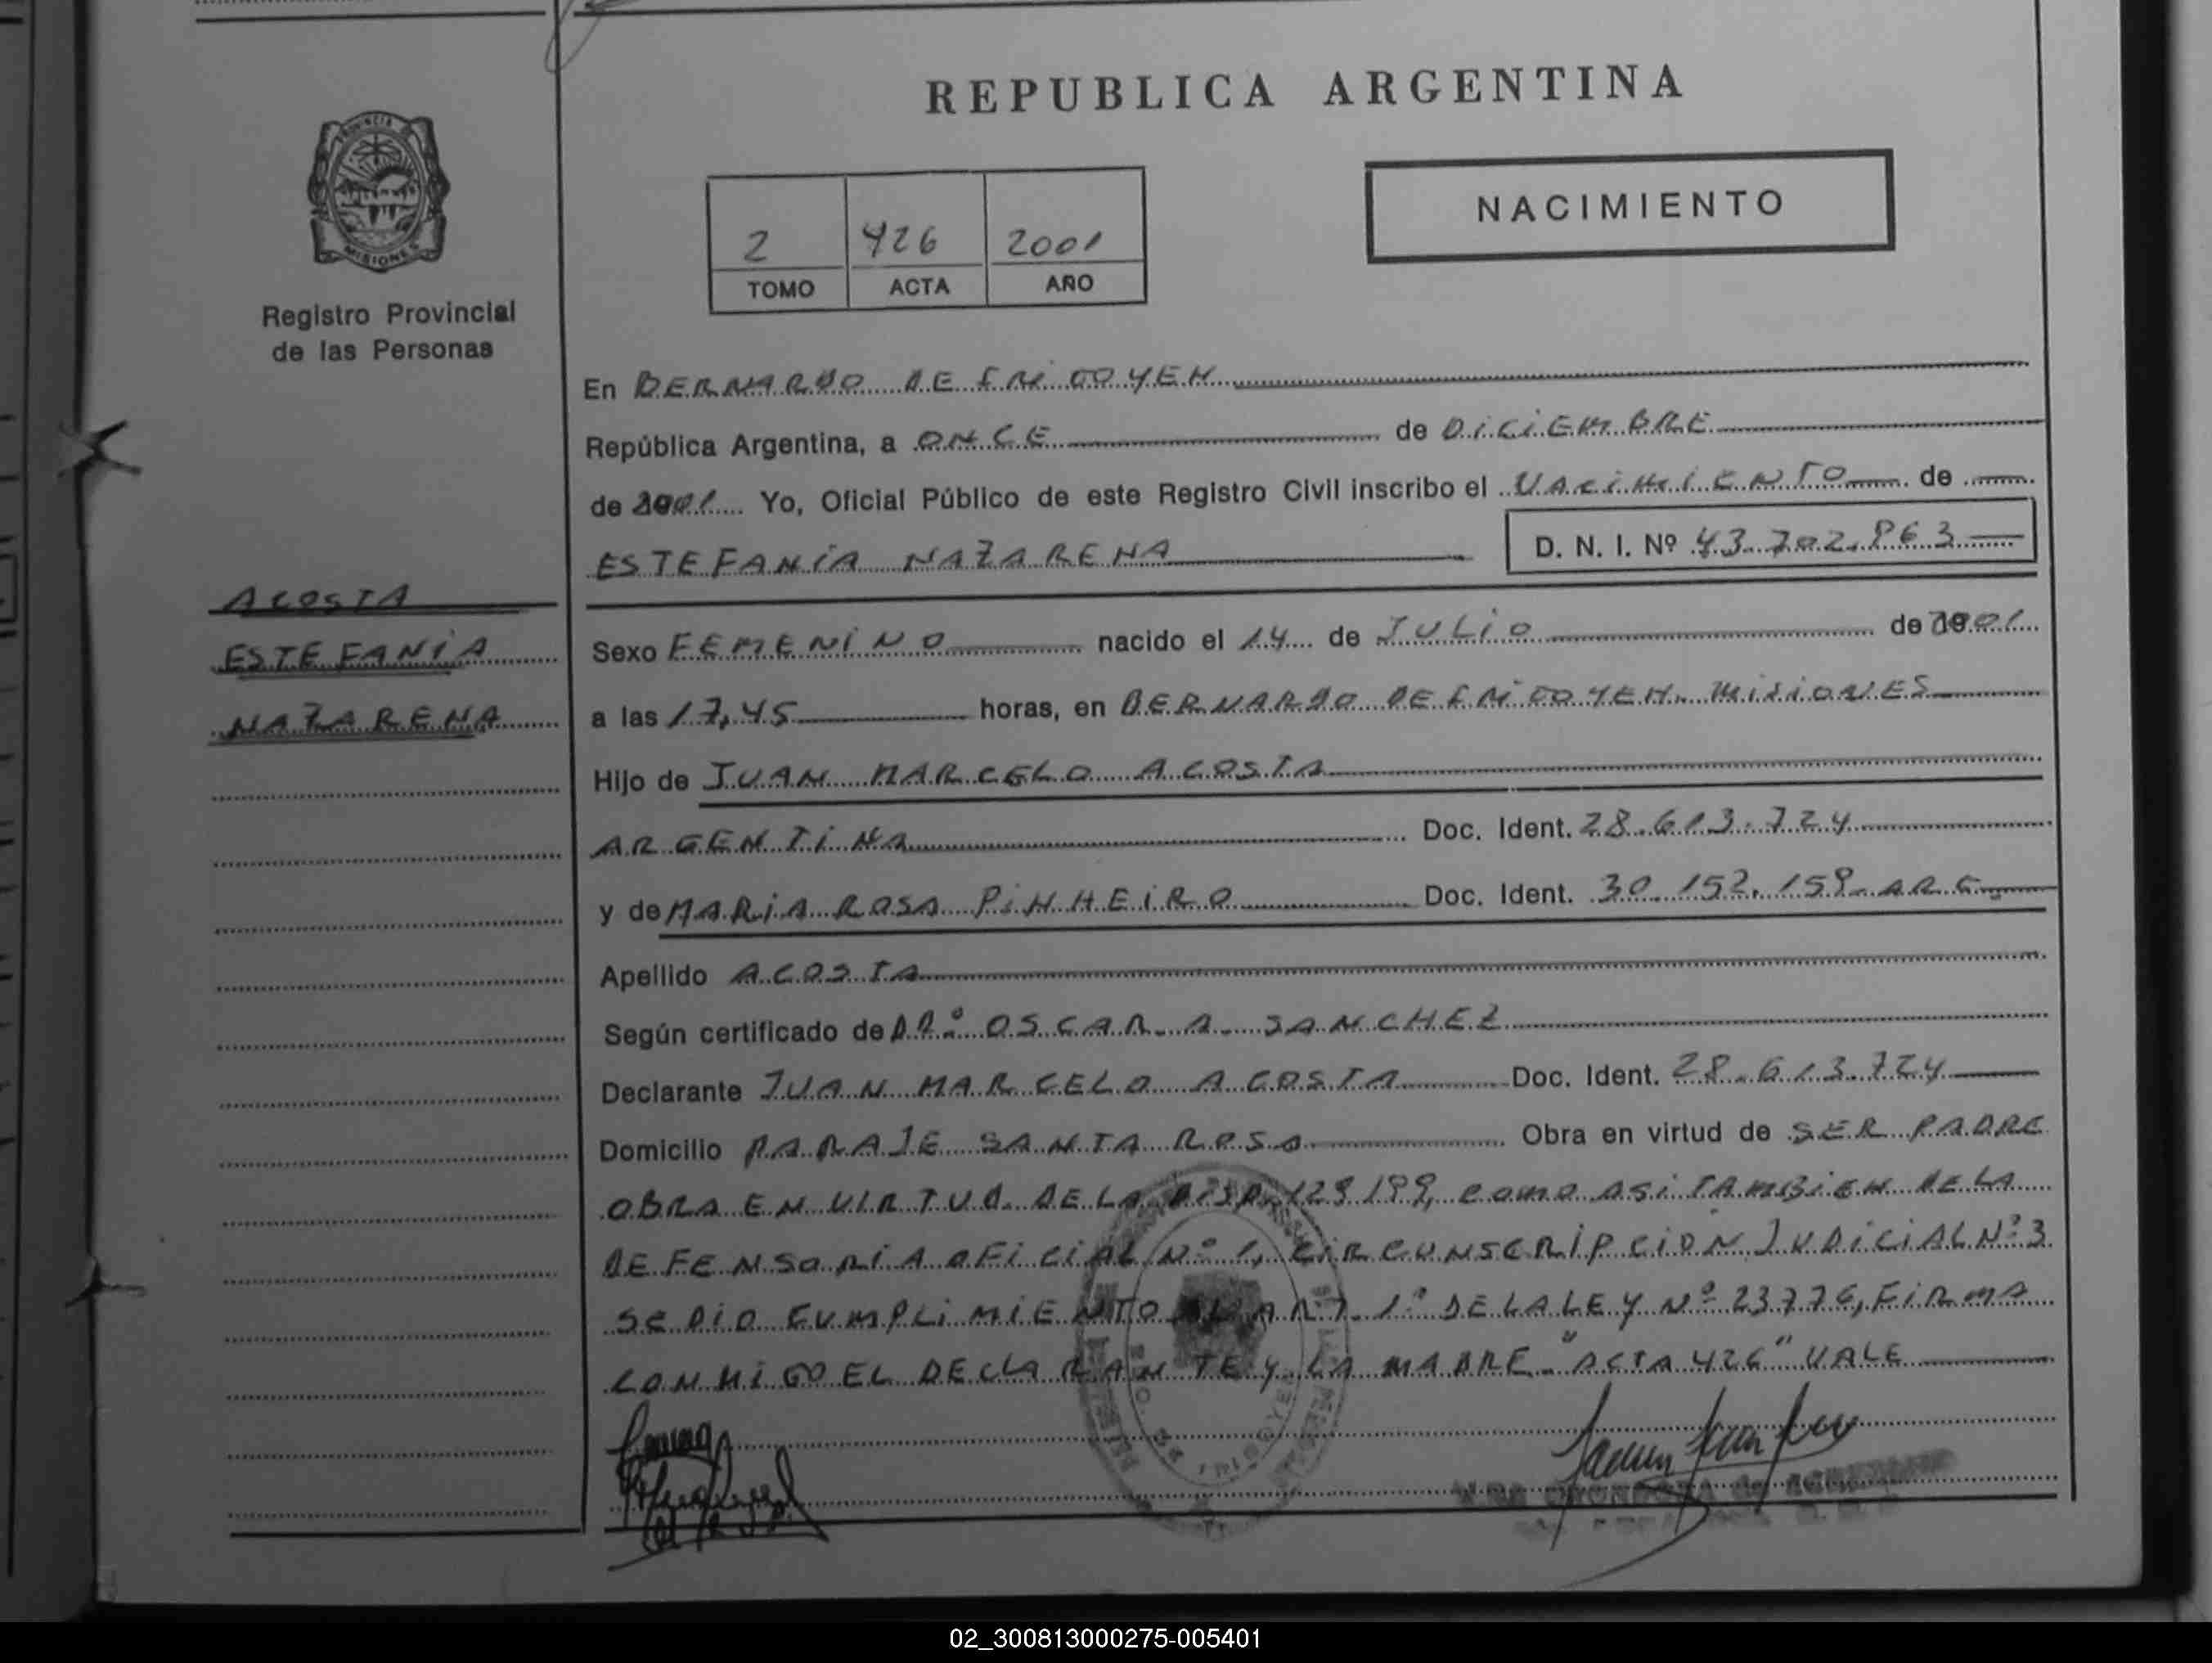 REPUBLICA ARGENTINA
PROVINCIA DE
MISIONES
Registro Provincial
de las Personas
2 426 2001
TOMO ACTA AÑO
NACIMIENTO
En BERNARDO DE IRIGOYEN
República Argentina, a ONCE de DICIEMBRE
de 2001 Yo, Oficial Público de este Registro Civil inscribo el NACIMIENTO de
ESTEFANÍA NAZARENA D. N. I. Nº 43.702.863
ACOSTA
ESTEFANÍA
NAZARENA
Sexo FEMENINO nacido el 14 de JULIO de 2001
a las 17,45 horas, en BERNARDO DE IRIGOYEN. MISIONES
Hijo de JUAN MARCELO ACOSTA
ARGENTINA Doc. Ident. 28.613.724
y de MARIA ROSA PINHEIRO Doc. Ident. 30.152.159 ARG
Apellido ACOSTA
Según certificado de DR. OSCAR A. SANCHEZ
Declarante JUAN MARCELO ACOSTA Doc. Ident. 28.613.724
Domicilio PARAJE SANTA ROSA Obra en virtud de SER PADRE
OBRA EN VIRTUD DE LA DISP. 129/99, como asi TAMBIEN DE LA
DEFENSORIA OFICIAL Nº 1, CIRCUNSCRIPCION JUDICIAL Nº 3
SE DIO CUMPLIMIENTO AL ART. 1º DE LA LEY Nº 23776, FIRMA
CONMIGO EL DECLARANTE Y LA MADRE. "ACTA 426" VALE
02_300813000275-005401